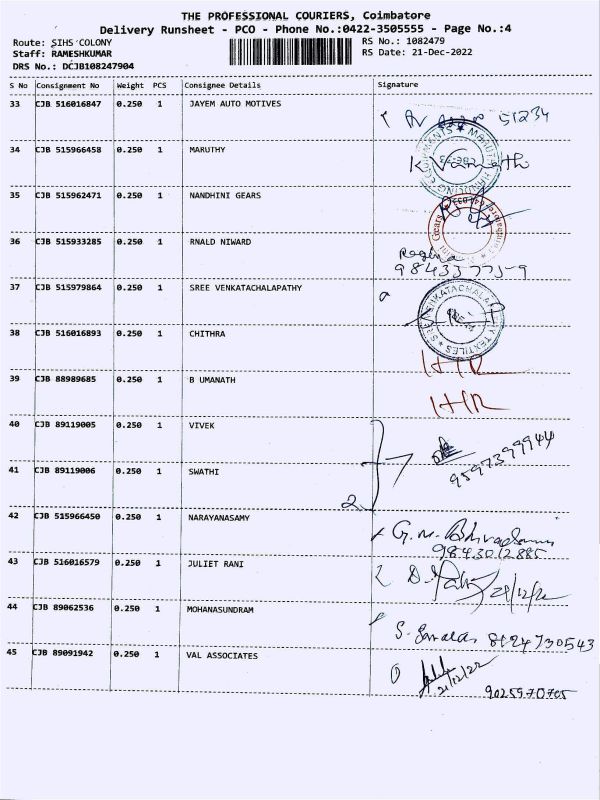 THE PROFESSIONAL COURIERS, Coimbatore
Delivery Runsheet - PCO - Phone No.:0422-3505555 - Page No.:4
Route: SIHS COLONY
Staff: RAMESHKUMAR
DRS No.: DCJB108247904
RS No.: 1082479
RS Date: 21-Dec-2022
S No Consignment No Weight PCS Consignee Details Signature
33 CJB 516016847 0.250 1 JAYEM AUTO MOTIVES 51234
34 CJB 515966458 0.250 1 MARUTHY
35 CJB 515962471 0.250 1 NANDHINI GEARS
36 CJB 515933285 0.250 1 RNALD NIWARD
37 CJB 515979864 0.250 1 SREE VENKATACHALAPATHY
38 CJB 516016893 0.250 1 CHITHRA
39 CJB 88989685 0.250 1 B UMANATH
40 CJB 89119005 0.250 1 VIVEK
41 CJB 89119006 0.250 1 SWATHI 2 9597399944
42 CJB 515966450 0.250 1 NARAYANASAMY
9843012885
43 CJB 516016579 0.250 1 JULIET RANI 21/12/22
44 CJB 89062536 0.250 1 MOHANASUNDRAM
8124730543
45 CJB 89091942 0.250 1 VAL ASSOCIATES 21/12/22
9025970705